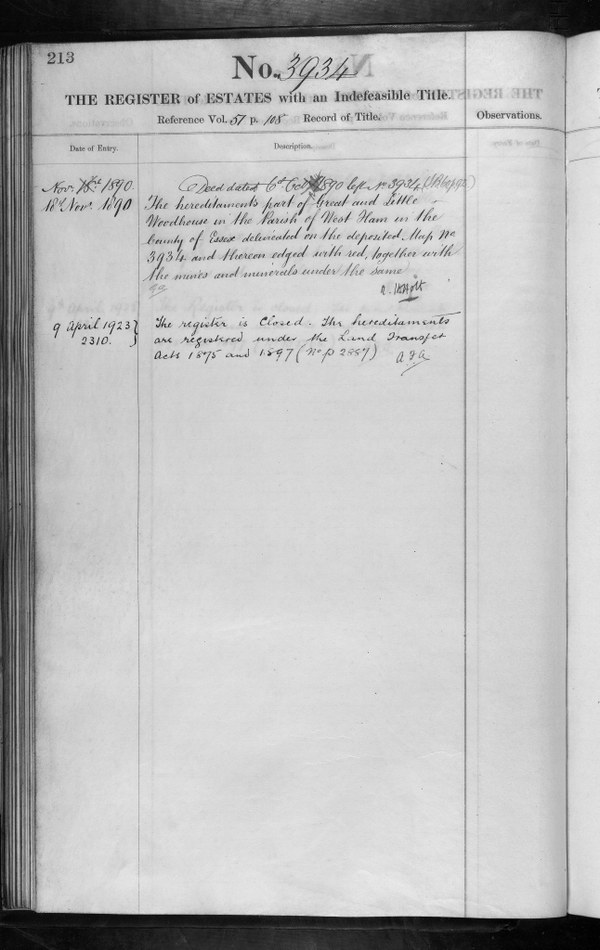 213
No. 3934
THE REGISTER of ESTATES with an Indefeasible Title.
Reference Vol. 57 p. 108 Record of Title.
Observations.
Date of Entry.
Description.
Nov. 18th 1890.
Deed dated 6th Oct 1890 left No 3934
18th Novr. 1890
The hereditaments part of Great and Little
Woodhouse in the Parish of West Ham in the
County of Essex delineated on the deposited Map No
3934 and thereon edged with red, together with
the mines and minerals under the same
9 April 1923
2310.
The register is Closed. The hereditaments
are registered under the Land Transfer
Acts 1875 and 1897 (No p 2887)